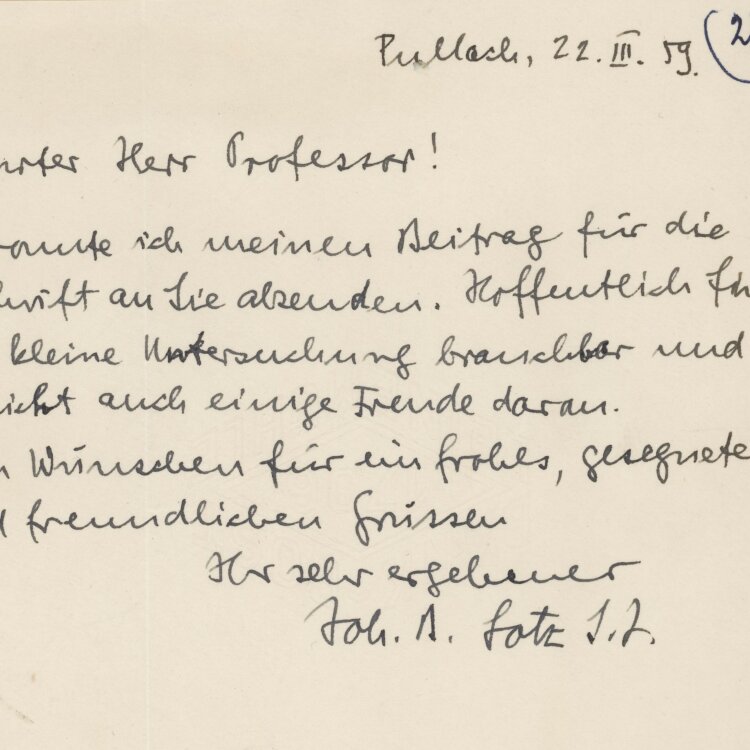 Pullach, 22. III. 59. (2
hrter Herr Professor!
onnte ich meinen Beitrag für die
hrift an Sie absenden. Hoffentlich
kleine Untersuchung brauchbar und
icht auch einige Freude daran.
n Wünschen für ein frohes, gesegnete
d freundlichen Grüssen
Ihr sehr ergebener
Joh. B. Lotz S.J.